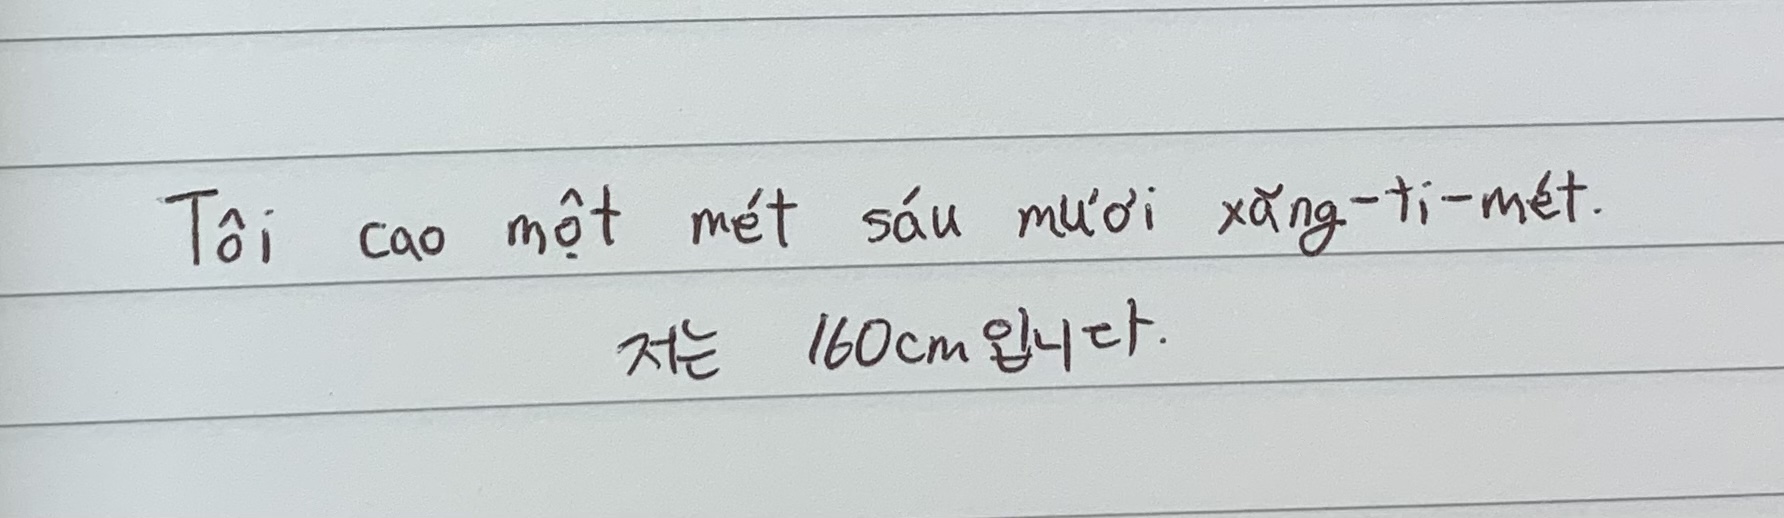 Tôi cao một mét sáu mươi xăng-ti-mét.
저는 160cm입니다.